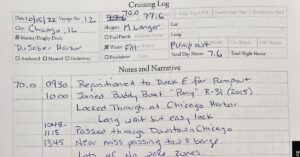 Cruising Log
Date 10/15/22 Voyage No. 12 70.0 77.6
Chicago, IL Skipper M Langer Lat
Marina/Dock Fuel Long
DuSable Harbor Water Fill Pumpout
Anchored Moored Underway Total Day Hours 7.6 Total Night Hours
Notes and Narrative
70.0 0930 Repositioned to Dock E for Pumpout
1000 Joined Buddy Boat "Pony" R-31 (2015)
Locked Through at Chicago Harbor
Long wait but easy lock
1048-
1115 Passed through Downtown Chicago
1345 Near miss passing tow & barge.
Lots of No wake zones.